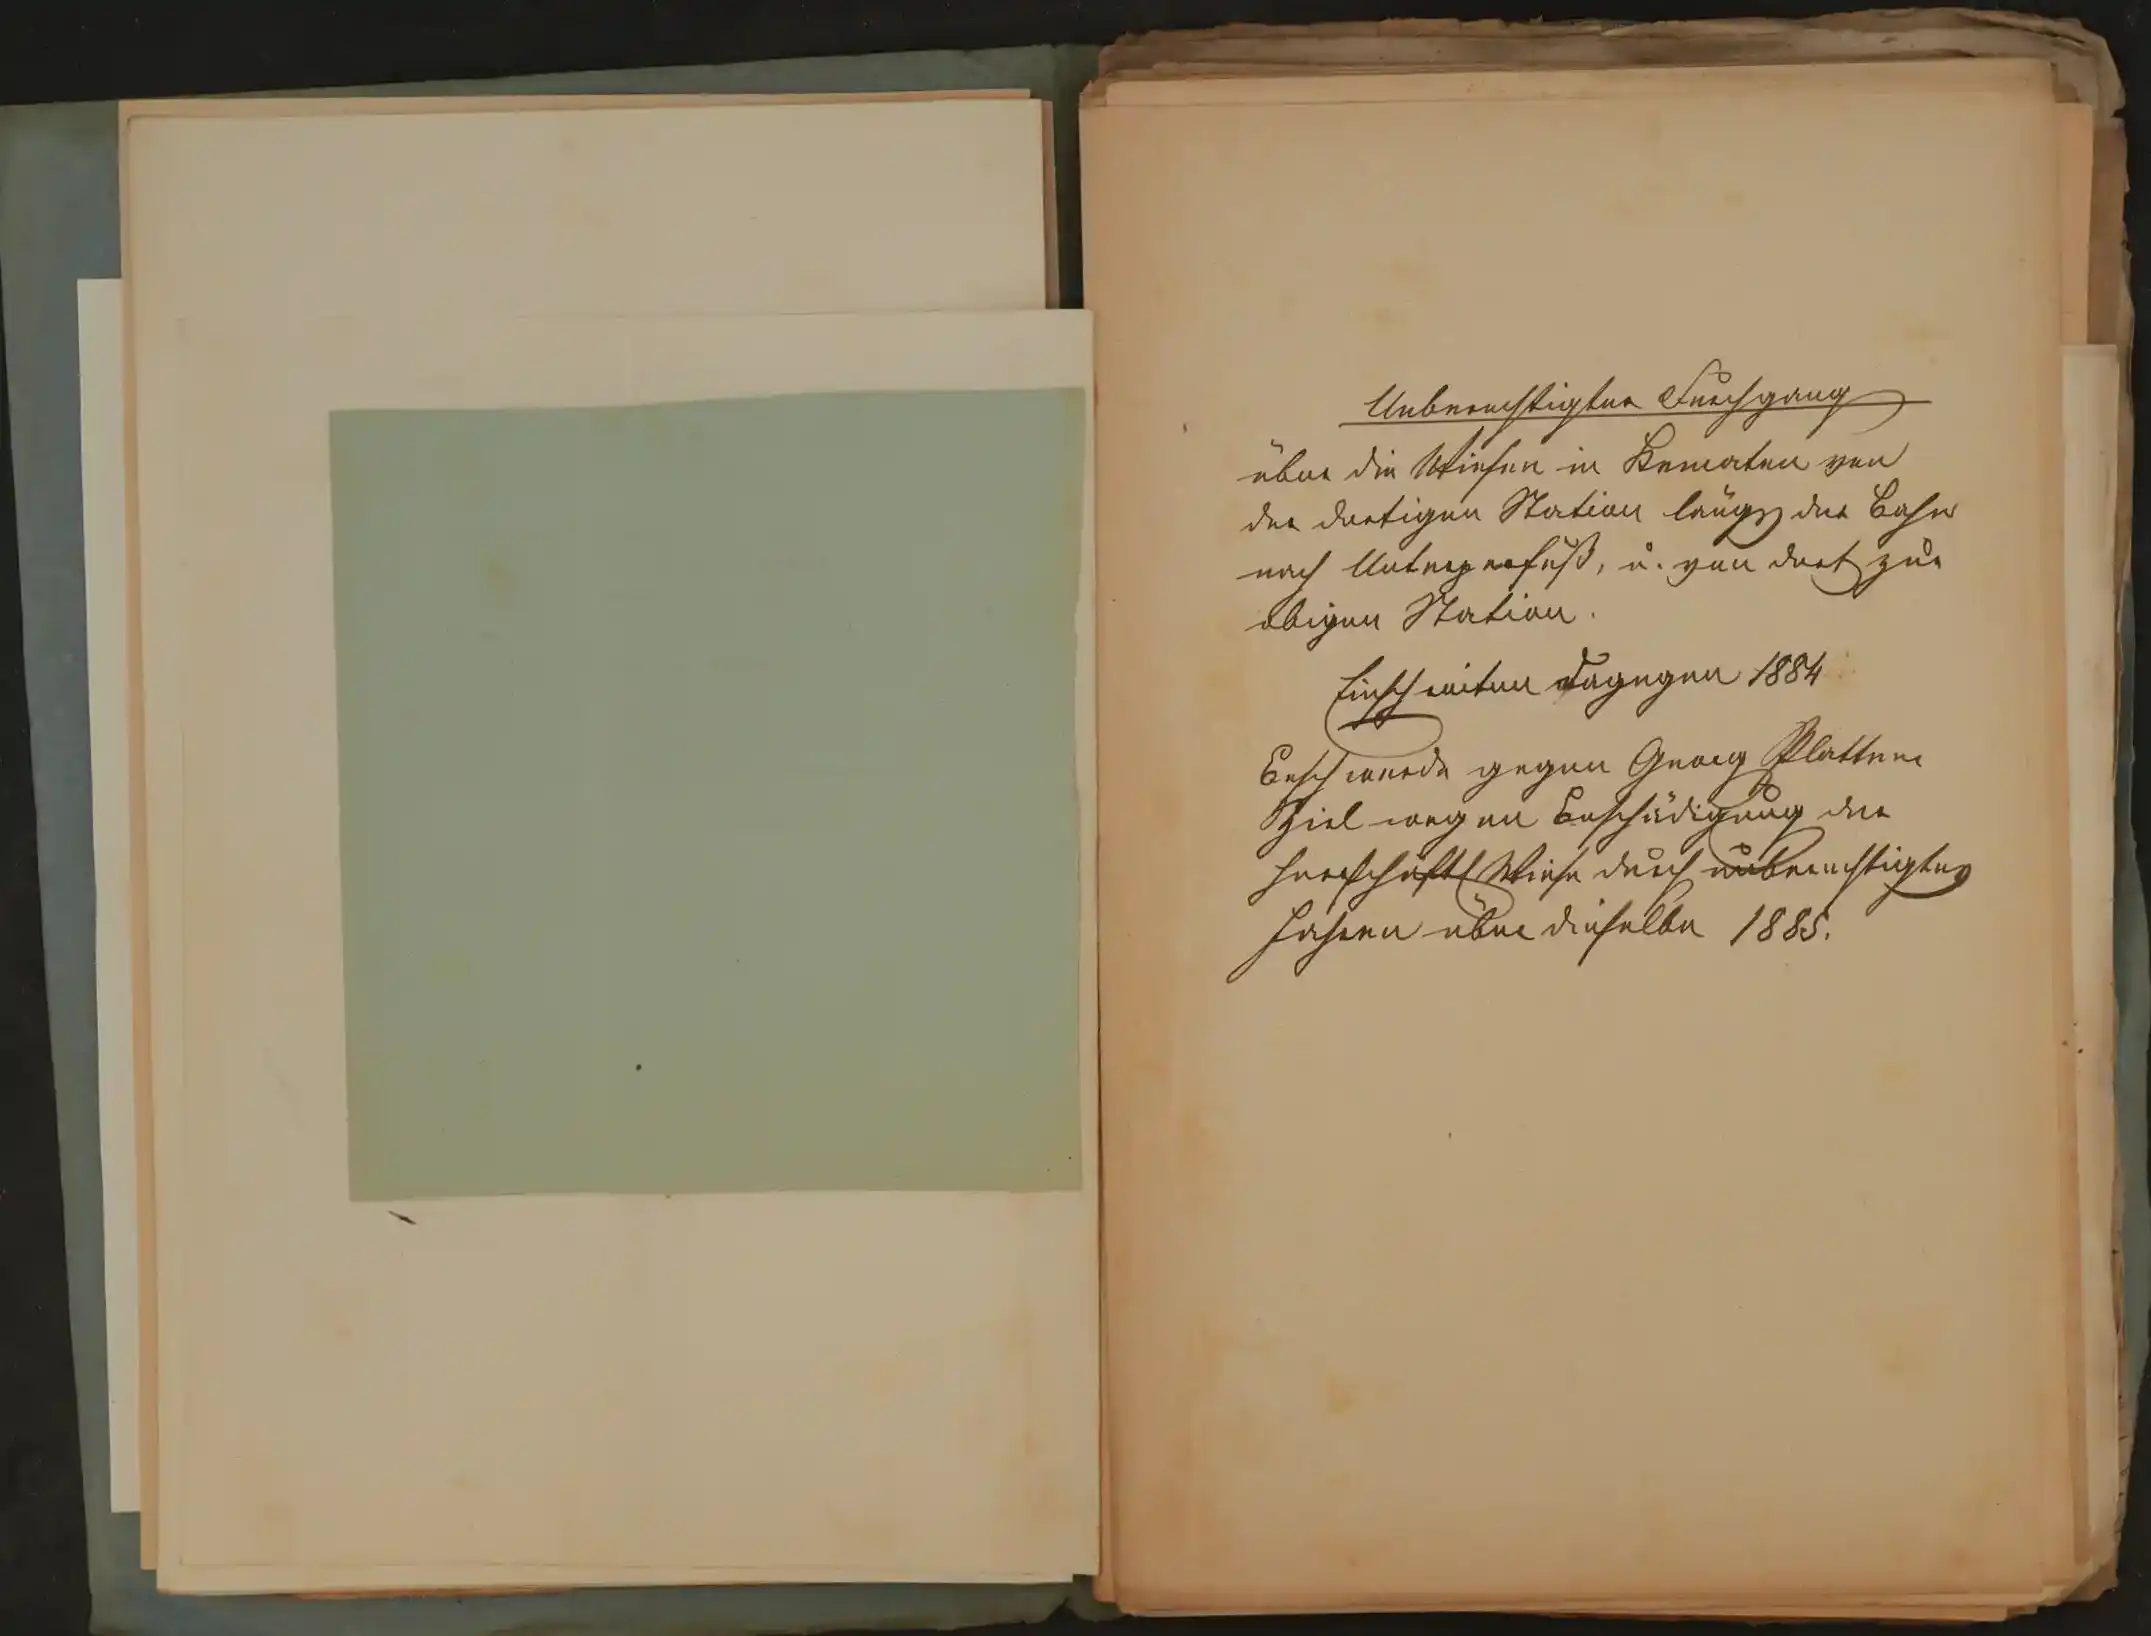 Unberechtigter Durchgang
über die Wiesen in Kematen von
der dortigen Station längs der Bahn
nach Unterperfuß, u. von dort zur
obigen Station.
Einschreiten dagegen 1884
Beschwerde gegen Georg Plattner
wegen Beschädigung der
herrschaftl Wiese durch unberechtigtes
Fahren über dieselbe 1885.